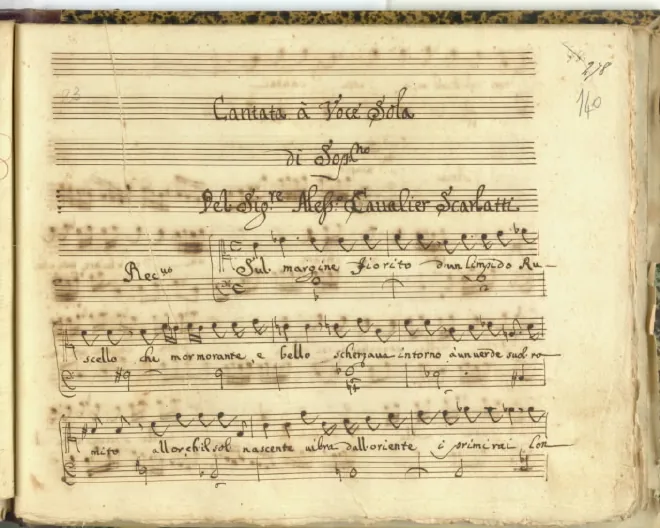 278
140
Cantata à Voce Sola
di Sop.no
Del Sig.re Aless. Cavalier Scarlatti
Rec.vo
Sul margine Fiorito d'un limpido Ru-
scello che mormorante e bello scherzava intorno a un verde suol ro
mito allorche il sol nascente vibra dall'oriente i primi rai Con